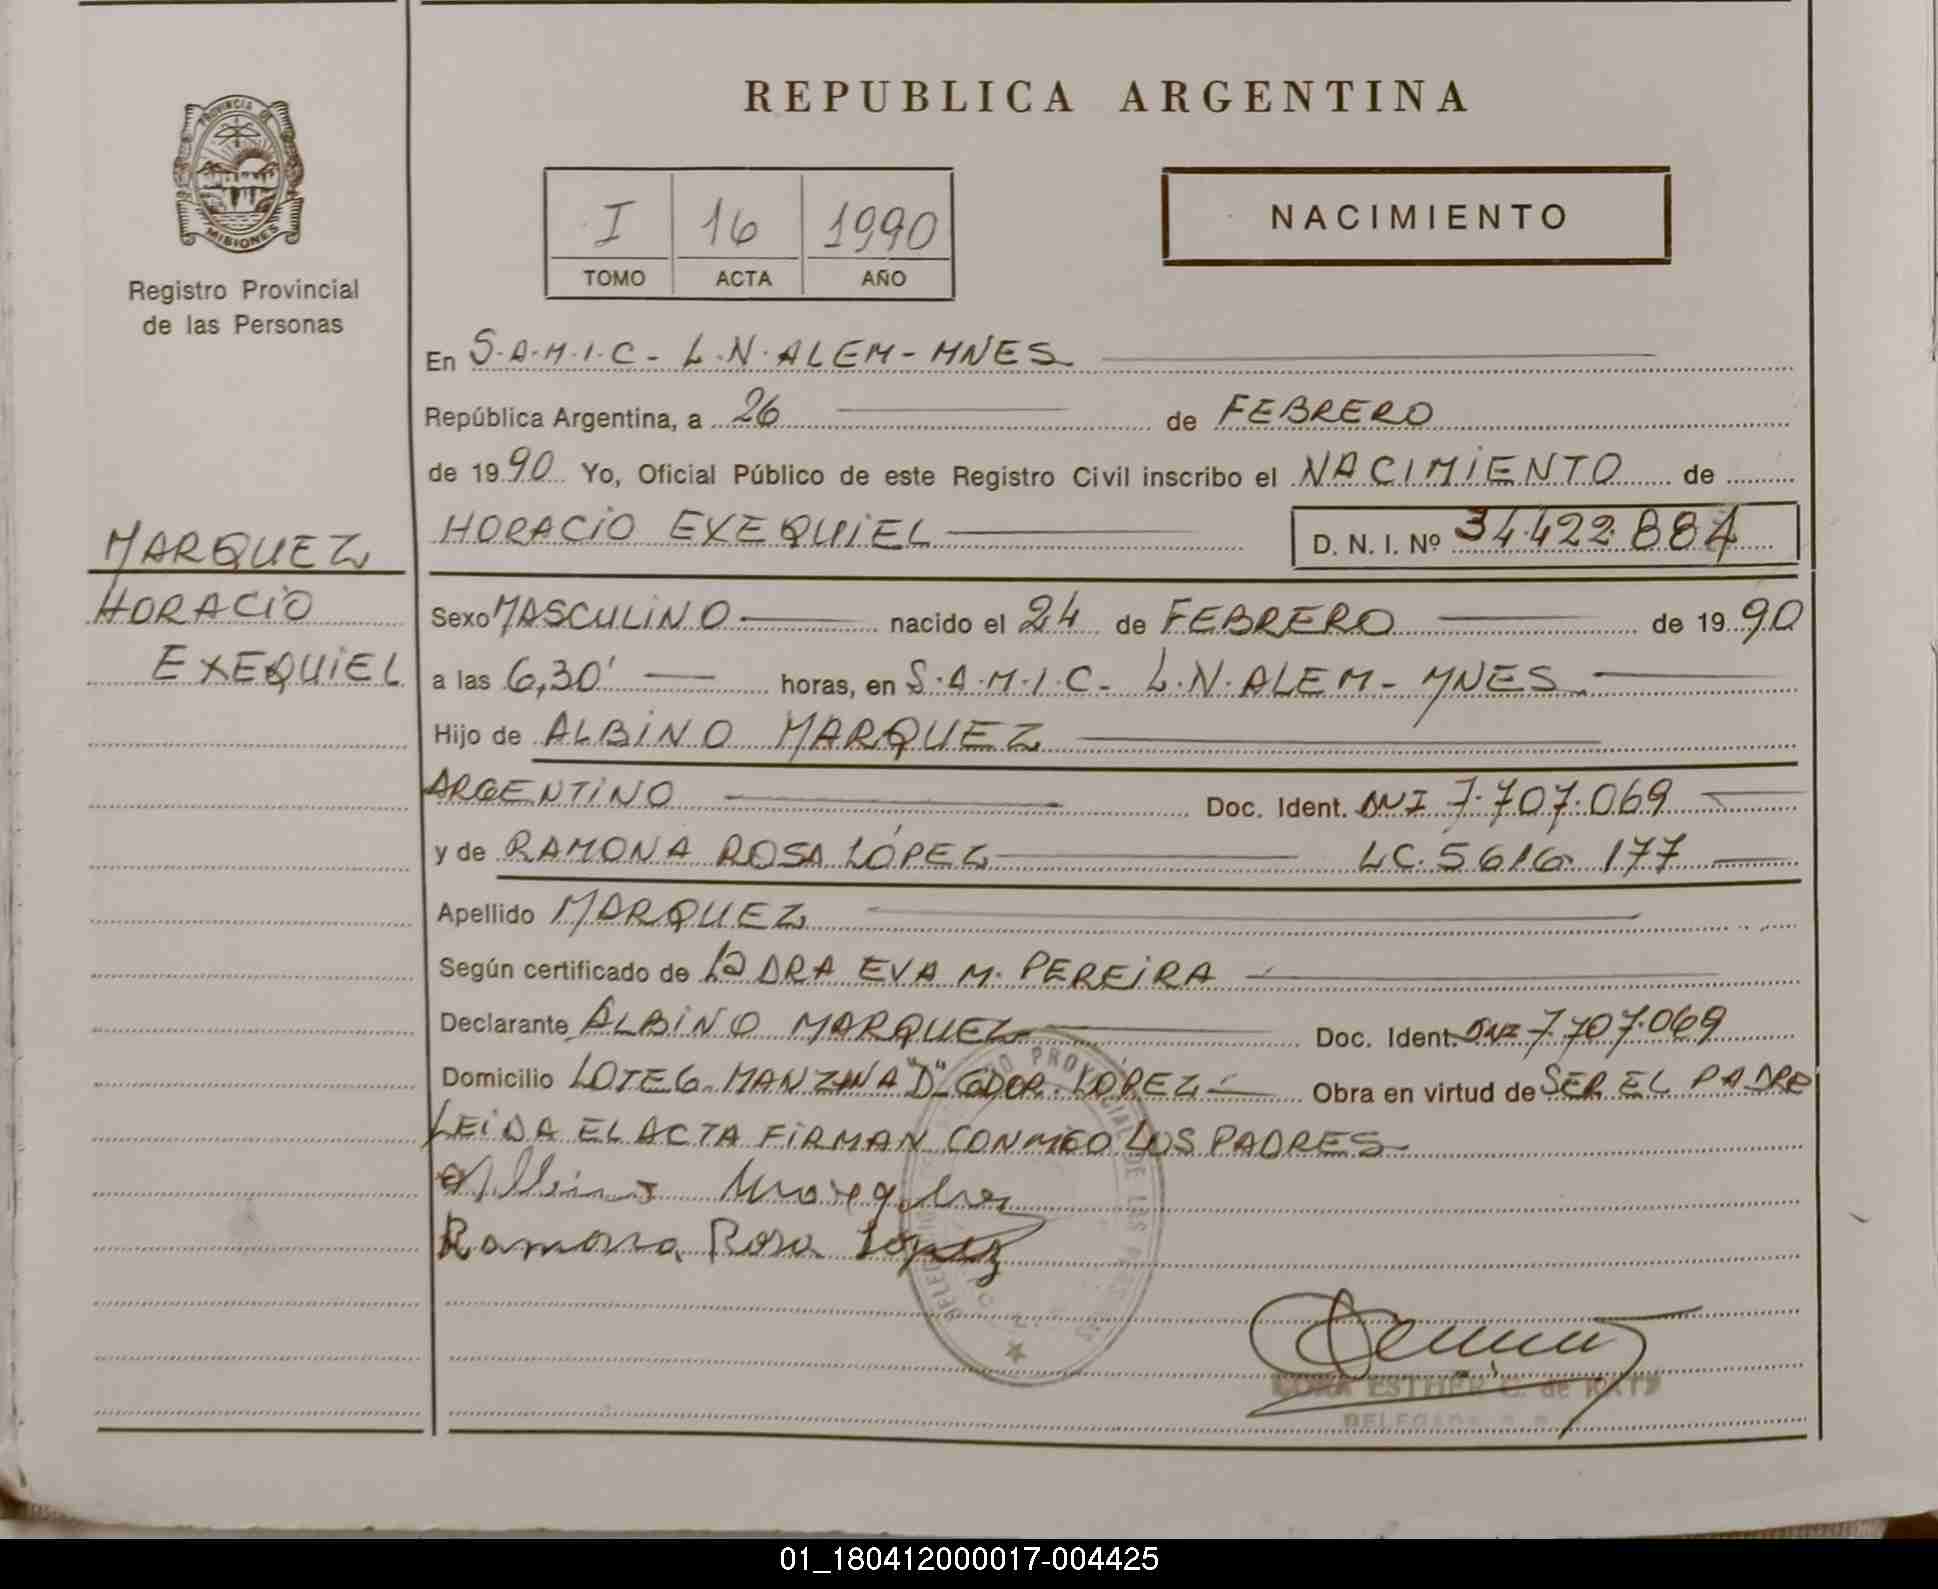 REPUBLICA ARGENTINA
PROVINCIA DE
MISIONES
Registro Provincial
de las Personas
I 16 1990
TOMO ACTA AÑO
NACIMIENTO
En S.A.M.I.C- L.N.ALEM-MNES
República Argentina, a 26 de FEBRERO
de 1990 Yo, Oficial Público de este Registro Civil inscribo el NACIMIENTO de
HORACIO EXEQUIEL D. N. I. Nº 34.422.884
MARQUEZ
HORACIO
EXEQUIEL
Sexo MASCULINO nacido el 24 de FEBRERO de 1990
a las 6,30' horas, en S.A.M.I.C- L.N.ALEM- MNES
Hijo de ALBINO MARQUEZ
ARGENTINO Doc. Ident. DNI 7.707.069
y de RAMONA ROSA LÓPEZ LC.5616.177
Apellido MARQUEZ
Según certificado de la DRA EVA M. PEREIRA
Declarante ALBINO MARQUEZ Doc. Ident. DNI 7.707.069
Domicilio LOTE 6- MANZANA "D" GDOR. LÓPEZ- Obra en virtud de SER EL PADRE
LEIDA EL ACTA FIRMAN CONMIGO LOS PADRES-
Albino Marquez
Ramona Rosa López
ESTHER G. de
DELEGADA
01_180412000017-004425